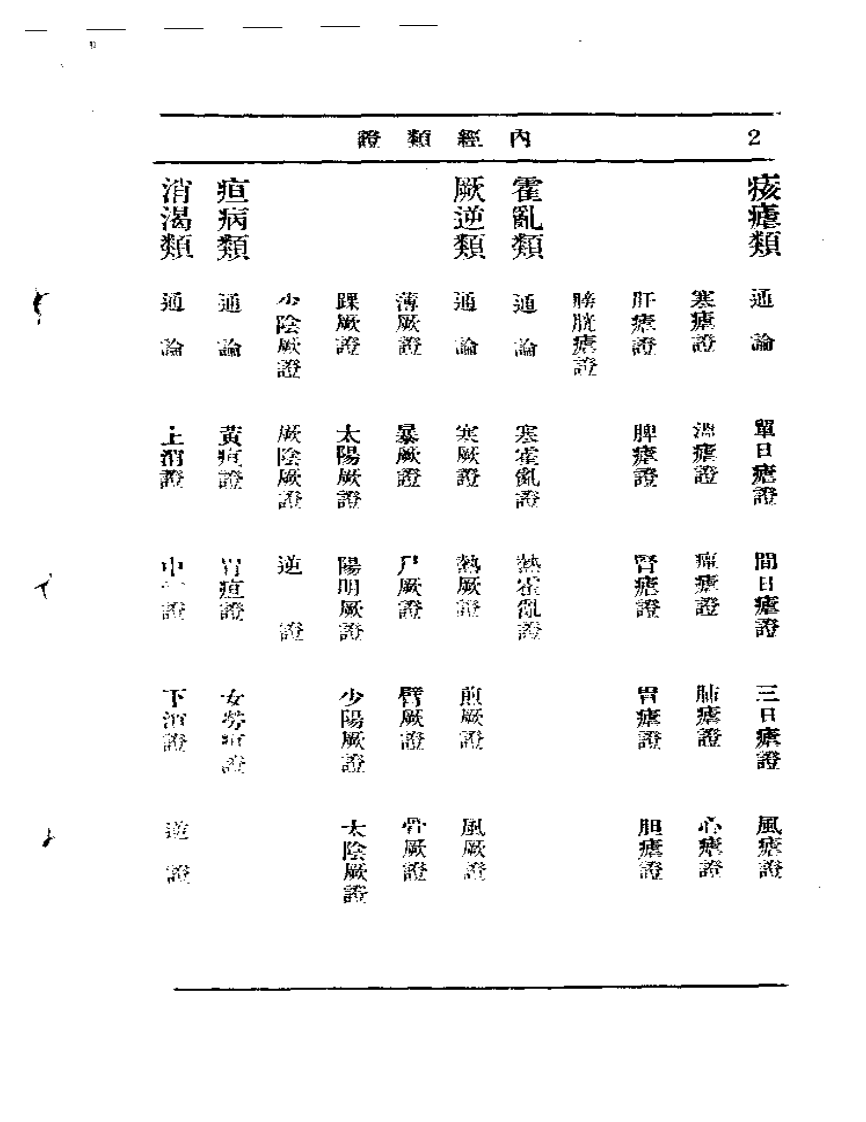 2
內經類證
痎瘧類 通論 單日瘧證 間日瘧證 三日瘧證 風瘧證
寒瘧證 溫瘧證 癉瘧證 肺瘧證 心瘧證
肝瘧證 脾瘧證 腎瘧證 胃瘧證 胆瘧證
膀胱瘧證
霍亂類 通論 寒霍亂證 熱霍亂證
厥逆類 通論 寒厥證 熱厥證 煎厥證 風厥證
薄厥證 暴厥證 尸厥證 臂厥證 骨厥證
踝厥證 太陽厥證 陽明厥證 少陽厥證 太陰厥證
少陰厥證 厥陰厥證 逆證
疸病類 通論 黃疸證 胃疸證 女勞疸證
消渴類 通論 上消證 中證 下消證 逆證